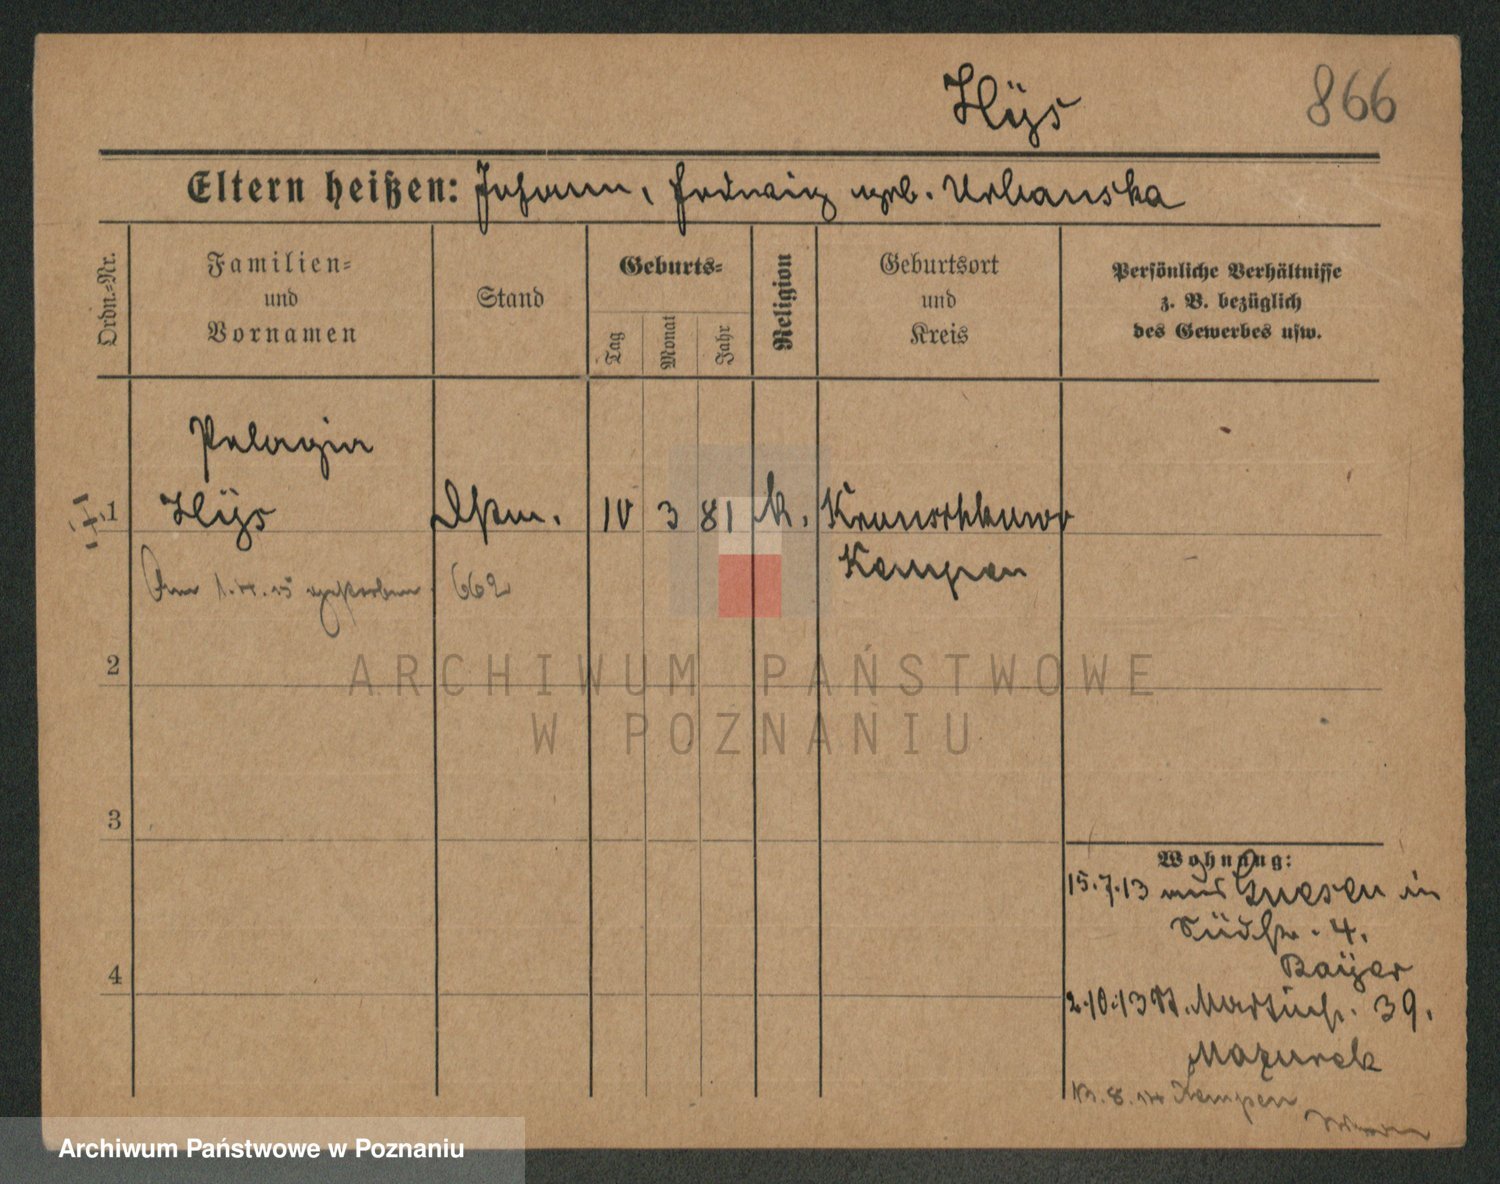 Hÿs 866
Eltern heißen: Johann, Hedwig geb. Urbanska
Ordn.-Nr.
Familien-
und
Vornamen
Stand
Geburts-
Tag
Monat
Jahr
Religion
Geburtsort
und
Kreis
Persönliche Verhältnisse
z. B. bezüglich
des Gewerbes usw.
Pelagia
1 Hÿs 10 3 81 k.
Kempen
Am gestorben 662
2
3
4
Wohnung:
15.7.13 aus Gnesen in
Südstr. 4.
Baÿer
2.10.13 St. Martinstr. 39.
Mazurek
Kempen
ARCHIWUM PAŃSTWOWE
W POZNANIU
Archiwum Państwowe w Poznaniu